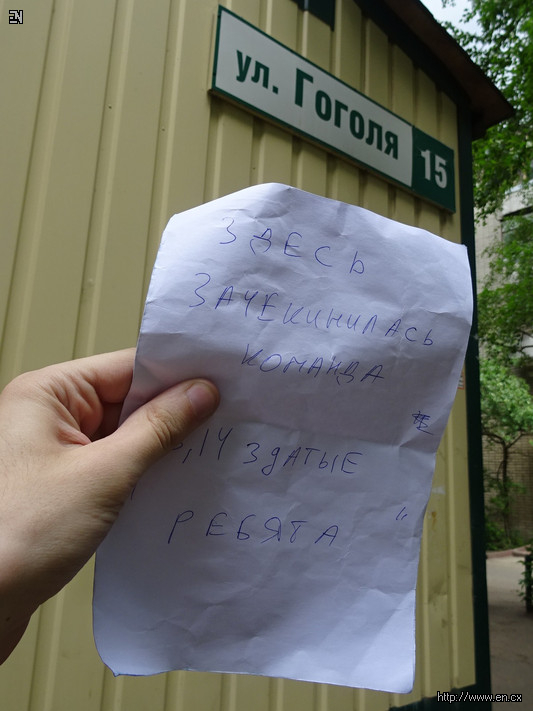 EN
ул. Гоголя 15
ЗДЕСЬ
ЗАЧЕКИНИЛАСЬ
КОМАНДА
,14 ЗДАТЫЕ
РЕБЯТА "
http://www.en.cx